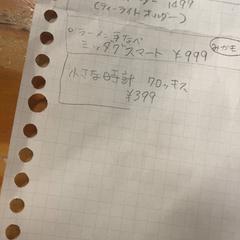 1499
(ティーライトホルダー)
○ラーメンまなべ
ミッタグスマート ¥999
みかも
小さな時計 クロッキス
¥399